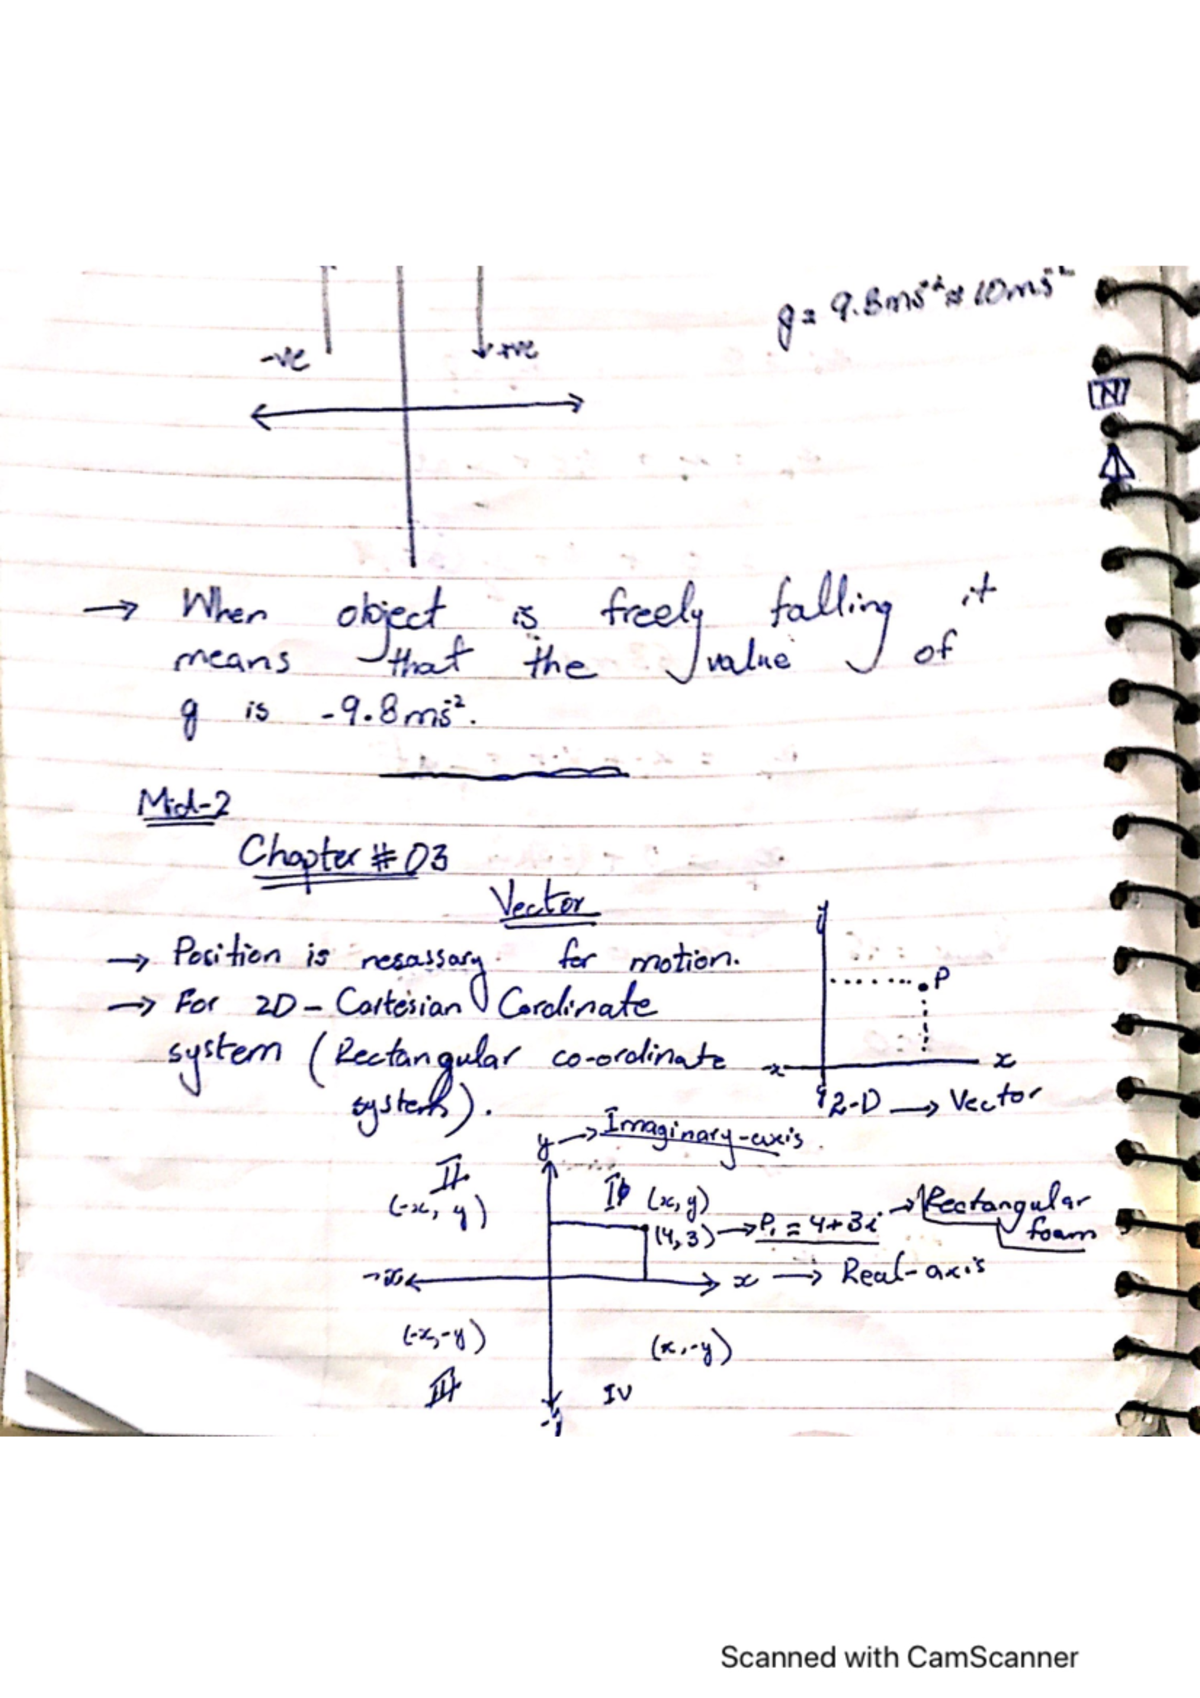 g = 9.8ms⁻² ≈ 10ms⁻²
-ve
+ve
N
→ When object is freely falling it
means that the value of
g is -9.8ms⁻².
Mid-2
Chapter # 03
Vector
→ Position is nesassary for motion.
→ For 2D - Cartesian Cordinate
system (Rectangular co-ordinate
system).
y
P
-x
x
2-D → Vector
y → Imaginary-axis.
II
(-x, y)
I (x, y)
(4, 3) → P₁ = 4+3i → Rectangular
foam
-x
x → Real-axis
(-x, -y)
(x, -y)
III
IV
-y
Scanned with CamScanner